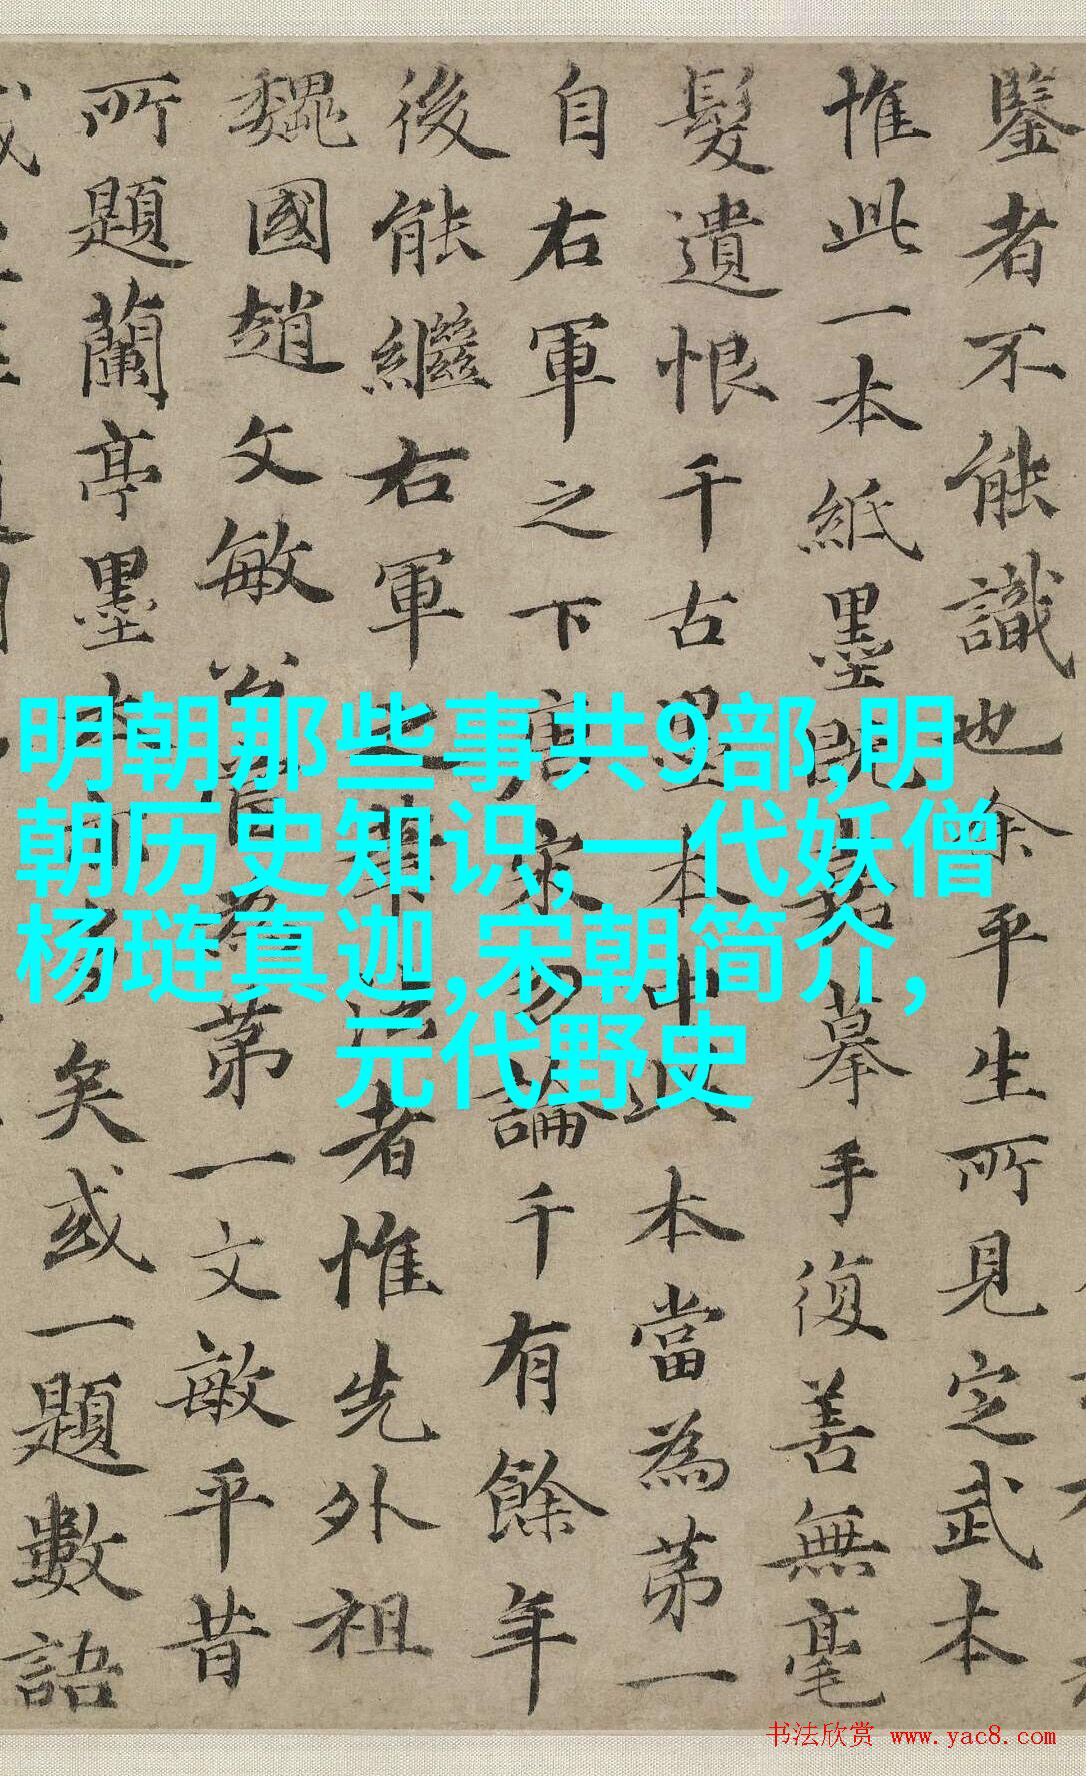 鑒者不能識也余平生所見定武本
惟此一本紙墨既摹手復善無毫
髮遺恨千古墨本中此本當為第一
自右軍之下唐宋勿論千有餘年
後能繼右軍之筆法者惟先外祖
魏國趙文敏公信為第一文敏平昔
所題蘭亭墨本亦多矣或一題數語
明朝那些事共9部,明
朝历史知识,一代妖僧
杨琏真迦,宋朝简介,
元代野史
书法欣赏 www.yac8.com